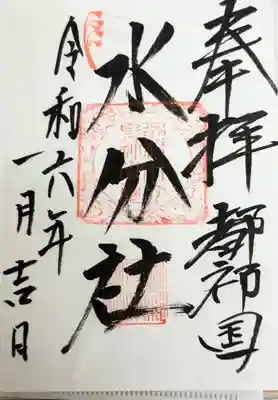 奉拝 都祁国
水分社
令和六年一月吉日